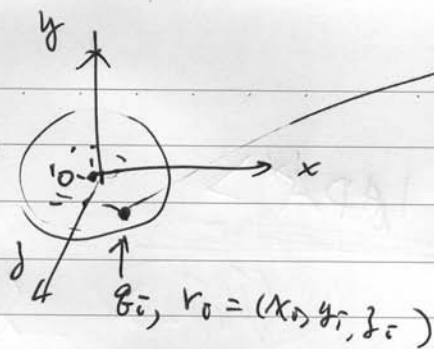 y
O
x
z
q_i, r_0 = (x_i, y_i, z_i)